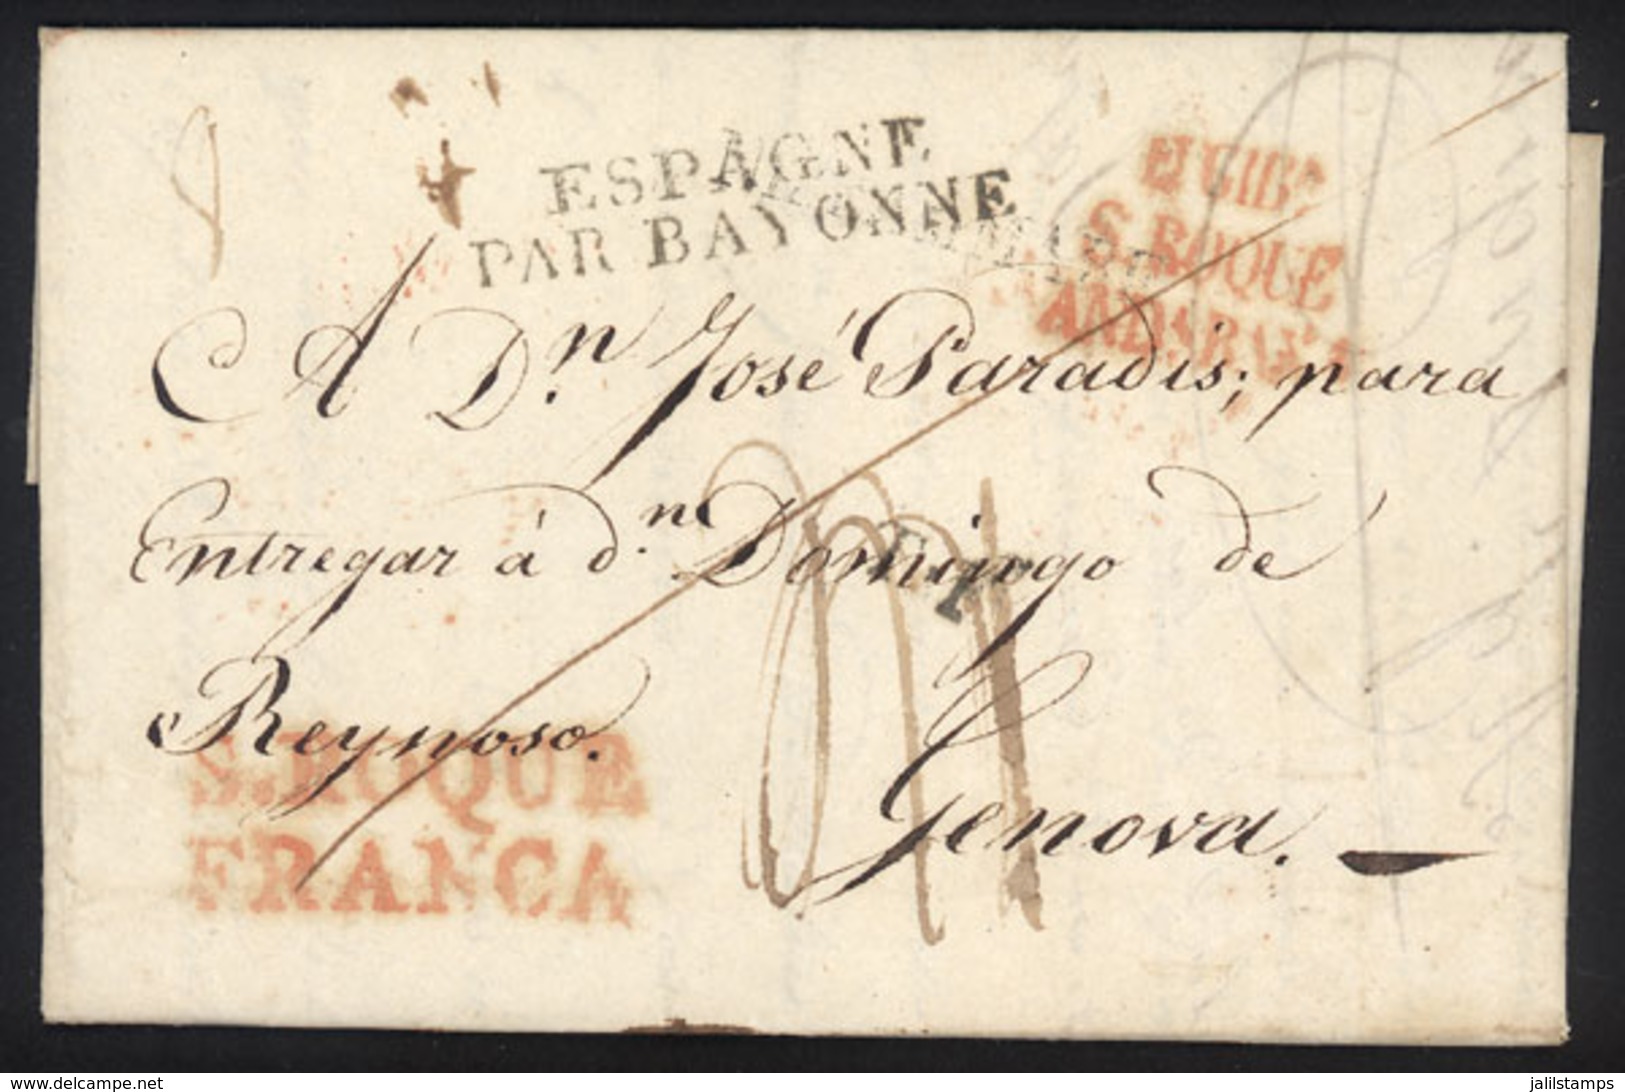 ESPAGNE
PAR BAYONNE
S. ROQUE
A D.n José Paradis; para
Entregar á d.n Domingo de
Reynoso.
S. ROQUE
FRANCA
Genova.
delcampe.net jalilstamps